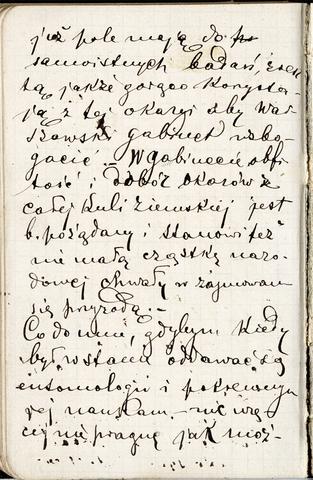 już pole mają do
samoistnych badań,
tą jakże gorąco korzysta-
ją z tej okazyi aby War-
szawski gabinet wzbo-
gacić – W gabinecie obfi-
tość i dobór okazów z
całej kuli ziemskiej jest
b. pożądany i stanowi też
nie małą cząstkę naro-
dowej chwały w zajmowan
się przyrodą. –
Co do mnie, gdybym kiedy
był w stanie oddawać się
entomologii i pokrewnym
jej naukom – nic wię-
cej nie pragnę jak